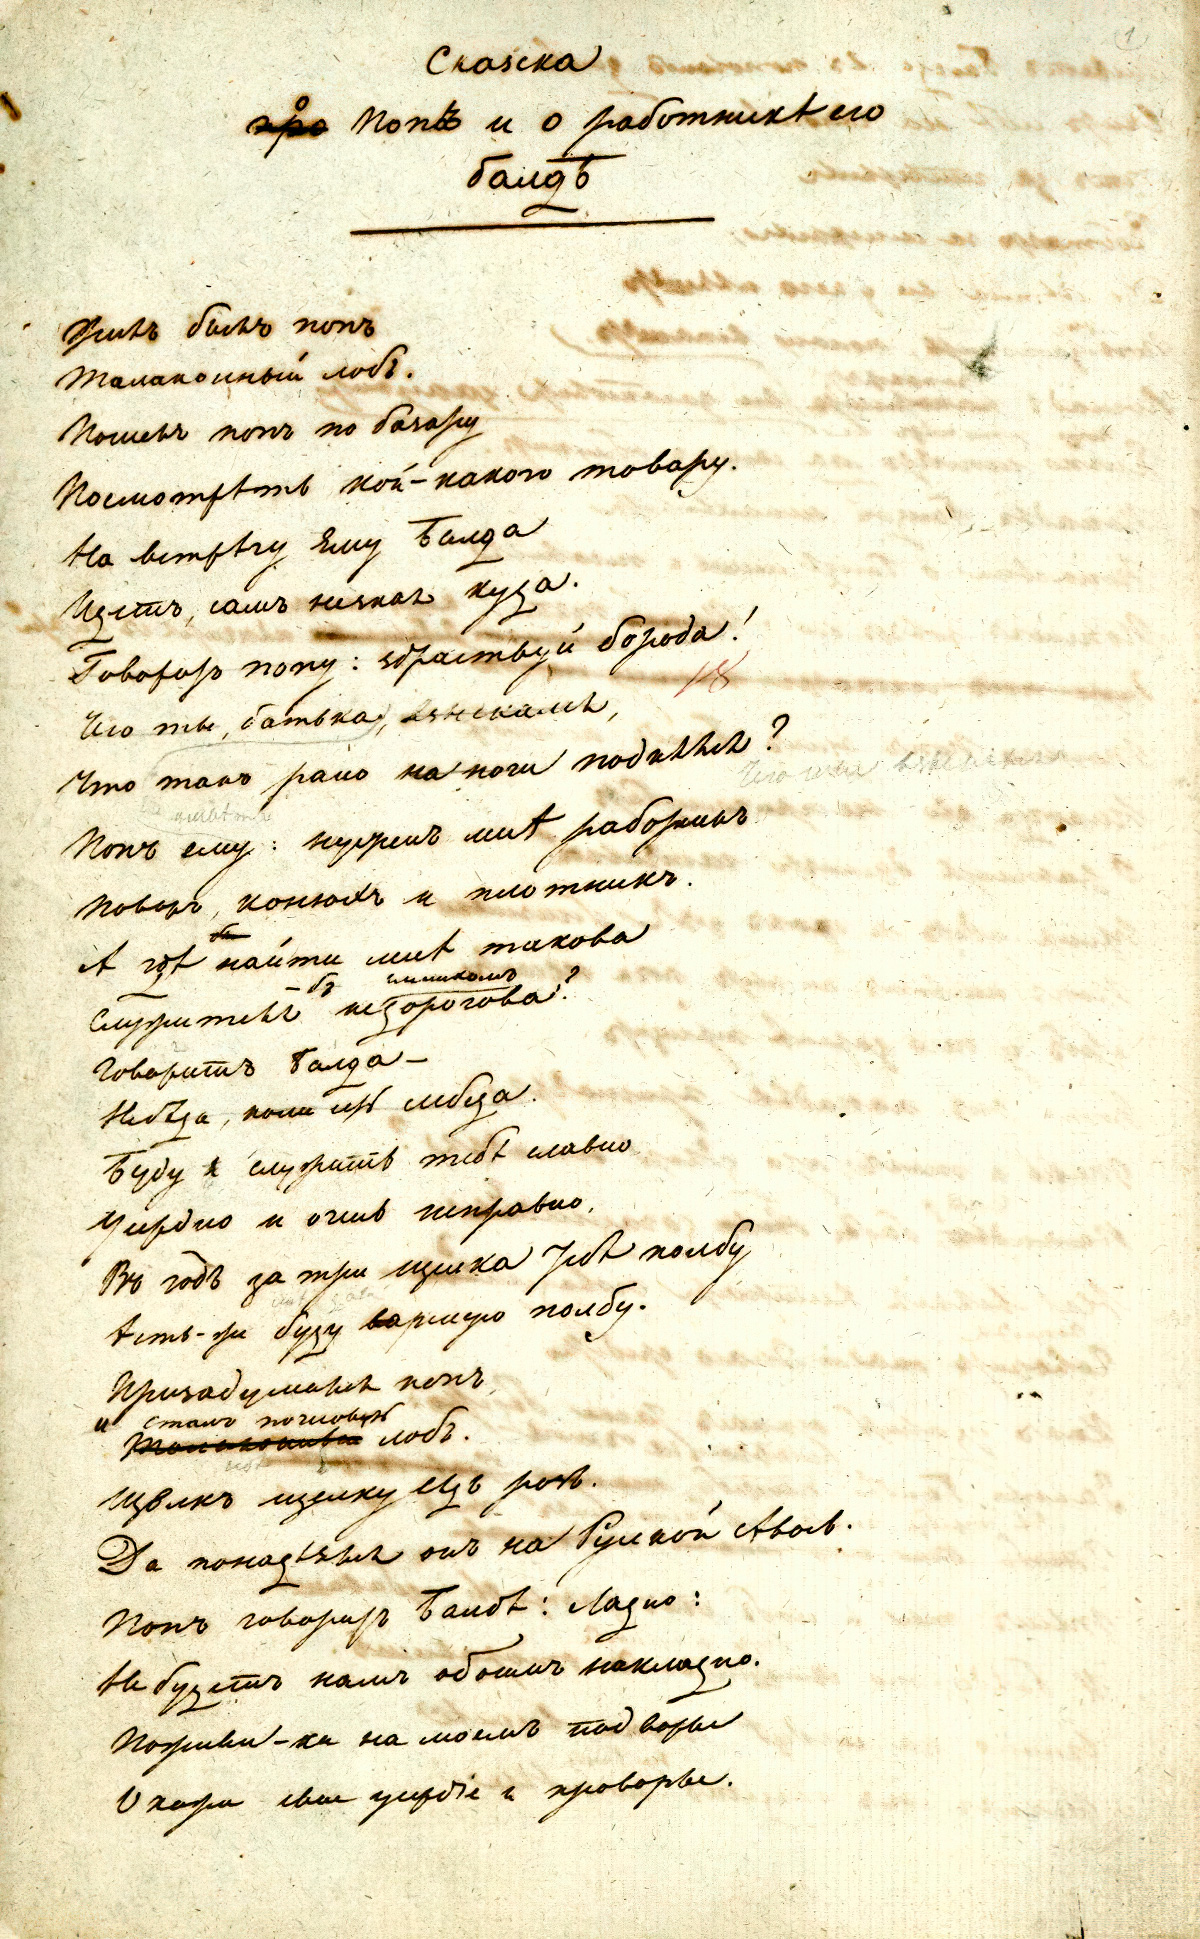 1
Сказка
про о Попѣ и о работникѣ его
балдѣ
Жилъ былъ попъ
Толоконный лобъ.
Пошелъ попъ по базару
Посмотрѣть кой-какого товару.
На встрѣчу ему Балда
Идетъ, самъ незная куда.
Говоритъ попу: здраствуй борода!
18
Что ты, батька, взыскался,
Что такъ рано на ноги поднялся?
Попъ ему: нуженъ мнѣ работникъ
Поваръ, конюхъ и плотникъ.
бы
А гдѣ найти мнѣ такова
-бъ слишкомъ
Служителя недорогова?
Говоритъ Балда —
Не бѣда, коли лебеда.
Буду я служить тебѣ славно
Усердно и очень исправно,
Въ годъ за три щелка тебѣ по лбу
Ѣсть-же буду вареную полбу.
Призадумался попъ
и сталъ почесывать
Толоконный лобъ.
Щелкъ щелку вѣдь розь.
Да понадѣялся онъ на Руской Авось.
Попъ говоритъ Балдѣ: Ладно:
Не будетъ намъ обоимъ накладно.
Поживи-ка на моемъ подворье
Окажи свое усердіе и проворье.